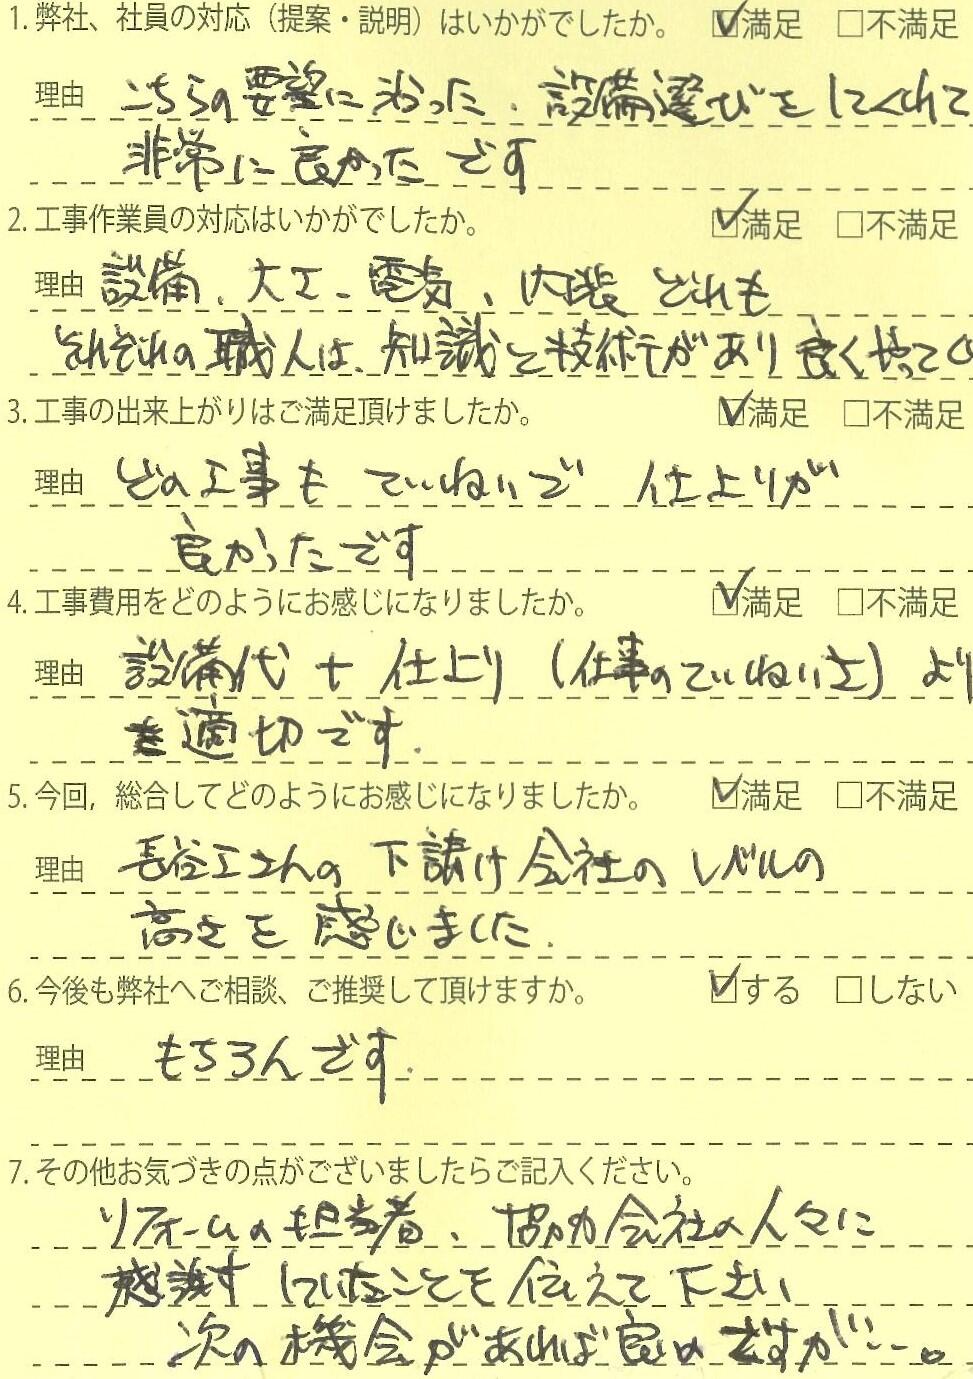 1. 弊社、社員の対応（提案・説明）はいかがでしたか。 ☑満足 □不満足
理由 こちらの要望に沿った、設備選びをしてくれて
非常に良かったです
2. 工事作業員の対応はいかがでしたか。 ☑満足 □不満足
理由 設備、大工、電気、内装 どれも
それぞれの職人は、知識と技術があり良くやってく
3. 工事の出来上がりはご満足頂けましたか。 ☑満足 □不満足
理由 どの工事も ていねいで 仕上りが
良かったです
4. 工事費用をどのようにお感じになりましたか。 ☑満足 □不満足
理由 設備代 + 仕上り (仕事のていねいさ) より
適切です.
5. 今回, 総合してどのようにお感じになりましたか。 ☑満足 □不満足
理由 長谷工さんの 下請け会社の レベルの
高さを 感じました.
6. 今後も弊社へご相談、ご推奨して頂けますか。 ☑する □しない
理由 もちろんです.
7. その他お気づきの点がございましたらご記入ください。
リフォームの担当者、協力会社の人々に
感謝 していたことを 伝えて下さい
次の機会があれば良いのですが…。